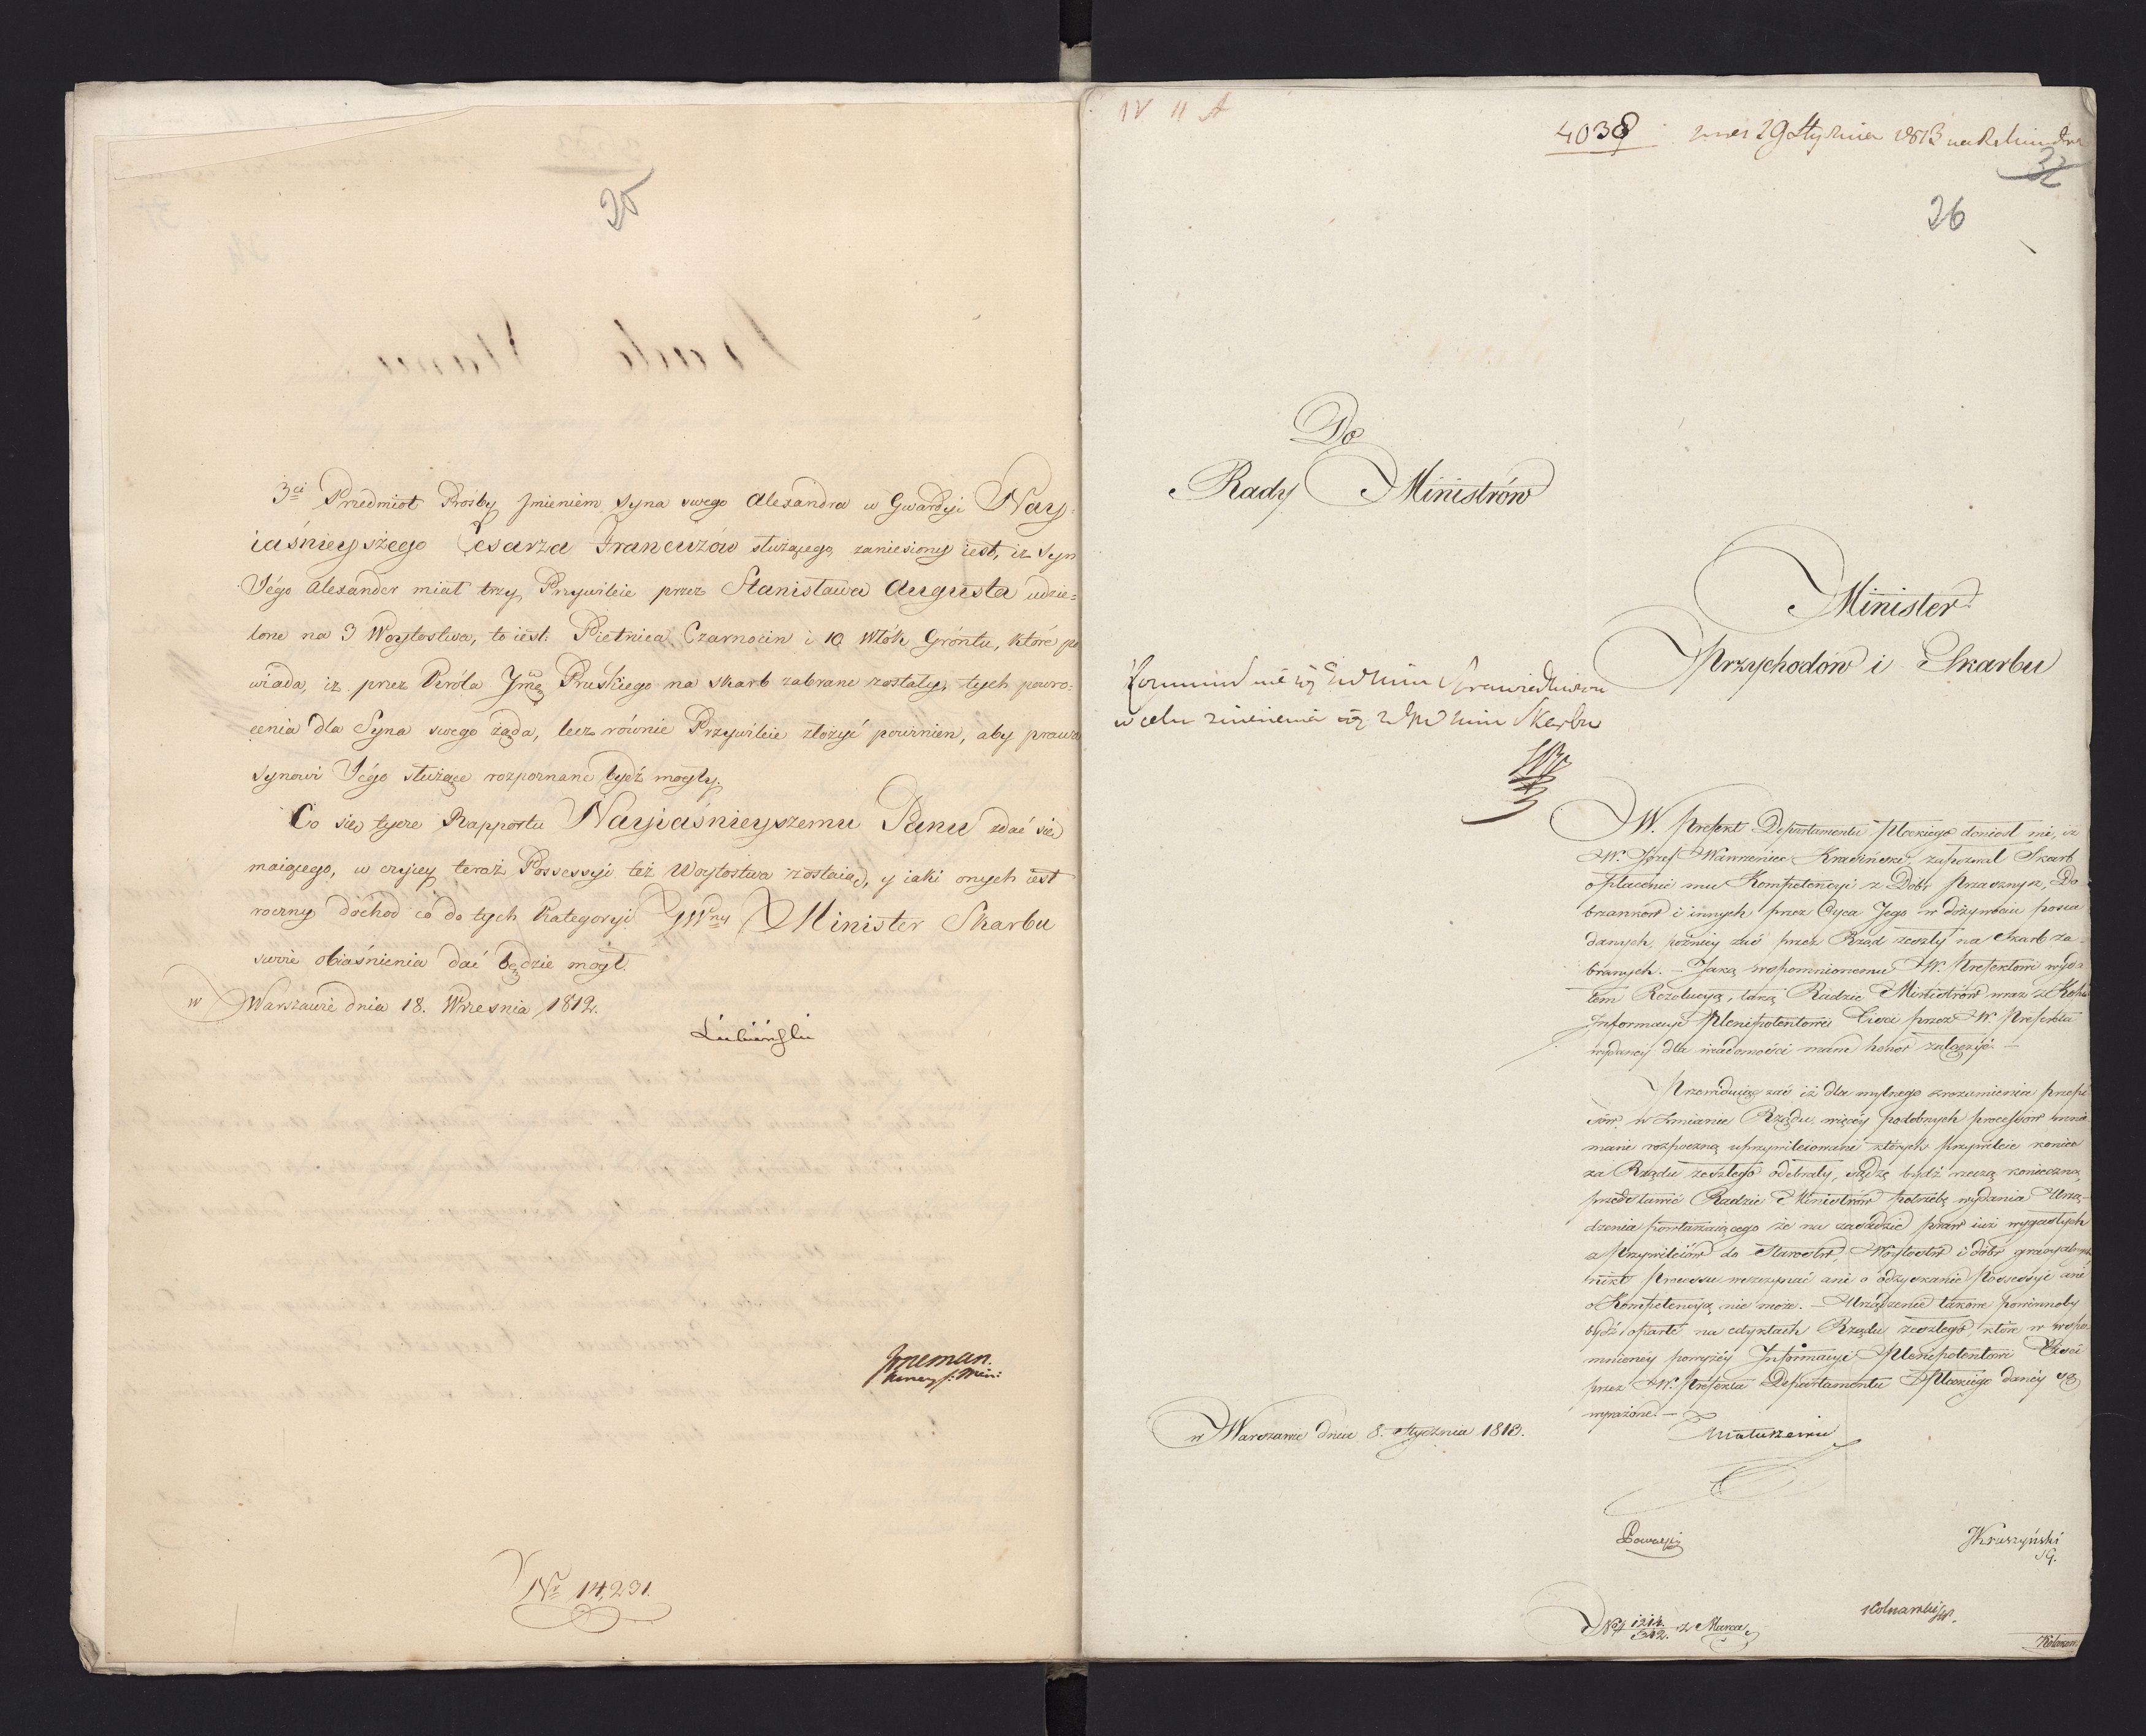 25
3ci Przedmiot Prośby Jmieniem Syna swego Alexandra w Gwardyi Nay-
iaśnieyszego Cesarza Francuzów służącego, zaniesiony iest, iż Syn
Jego Alexander miał trzy Przywileie przez Stanisława Augusta udzie-
lone na 3 Woytostwa, to iest: Pietnica Czarnocin i 10 Włók Gróntu, które po
wiada, iż przez Króla Jmci Pruskiego na skarb zabrane zostały, tych powró-
cenia dla Syna swego żąda, lecz równie Przywileie złożyć powinien, aby prawa
synowi Jego służące rozpoznane bydź mogły.
Co się tycze Rapportu Nayiaśnieyszemu Panu zdać się
maiącego, w czyiey teraz Possessyi też Woytostwa zostaią, y iaki onych iest
roczny dochod co do tych Kategoryi JWny Minister Skarbu
swoie obiaśnienia dać będzie mógł.
w Warszawie dnia 18. Wrzesnia 1812.
Łubieński
Nr 14,231.
IV II A
4038 29 Stycznia 1813
32
26
Do
Rady Ministrów
Minister
Przychodów i Skarbu
w celu zniesienia się z JW Min Skarbu
W. Prefekt Departamentu Płockiego doniósł mi, iż
W. Józef Wawrzeniec Krasiński, zapozwał Skarb
o płacenie mu Kompetencyi z Dóbr Przasnysz, Do
brzanków i innych przez Oyca Jego w dożywociu posia
danych, poźniey zaś przez Rząd zeszły na Skarb za-
branych. – Jaką wspomnionemu W. Prefektowi wyda
łem Rezolucyą, taką Radzie Ministrów wraz z Kopią
Informacyi Plenipotentowi przez W. Prefekta
wydaney dla wiadomości mam honor załączyć. –
Przewiduiąc zaś iż dla mylnego zrozumienia przepi
sów w zmianie Rządu, więcey podobnych processów mnie
manie rozpoczną uprzywileiowani których przywileie koniec
za Rządu zeszłego odebrały, sądzę bydź rzeczą konieczną,
przedstawić Radzie Ministrów potrzebę wydania Urzą-
dzenia powtarzaiącego że na zasadzie praw iuż wygasłych
a Przywileiów do Starostw, Woytostw i dóbr gracyalnych
nikt Processu wszczynać ani o odzyskanie Possessyi ani
o Kompetencyą nie może. – Urządzenie takowe powinnoby
bydź oparte na edyktach Rządu zeszłego, które w wspo-
mnioney powyżey Informacyi Plenipotentowi
przez W. Prefekta Departamentu Płockiego daney są
wyrażone. –
w Warszawie dnia 8. Stycznia 1813.
Matuszewic
Kruszyński
SG.